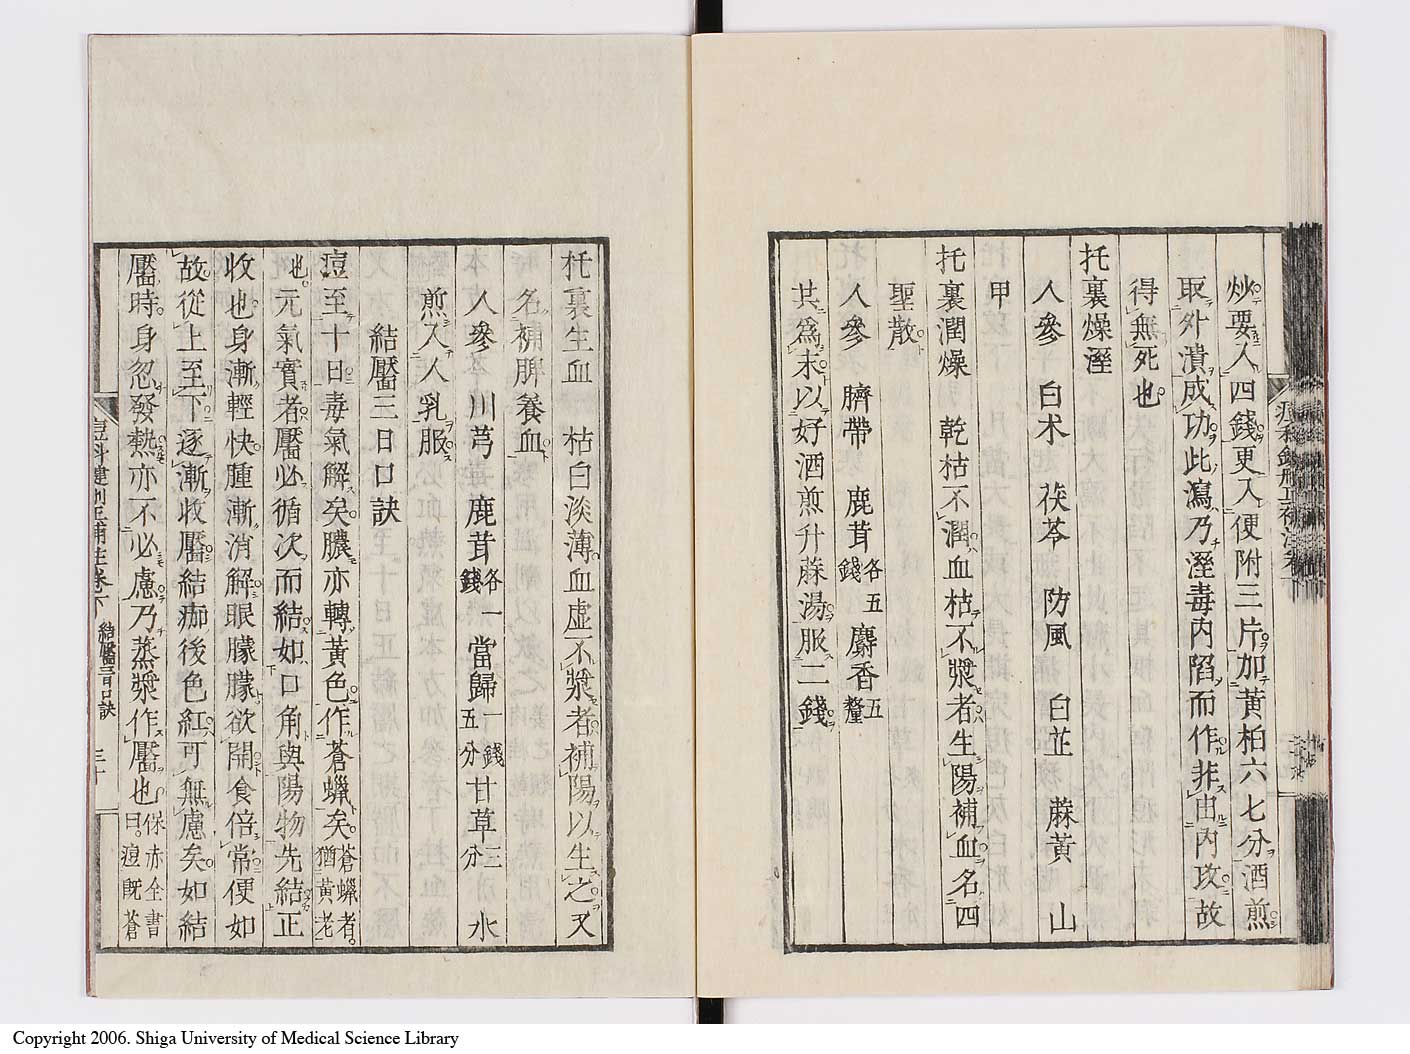 炒要入四錢更入便附三片加黃柏六七分酒煎
取外潰成功此瀉乃溼毒內陷而作非由內攻故
得無死也
托裏燥溼
人參 白朮 茯苓 防風 白芷 蔴黃 山
甲
托裏潤燥 乾枯不潤血枯不漿者生陽補血名四
聖散
人參 臍帶 鹿茸各五錢 麝香五釐
共爲末以好酒煎升蔴湯服二錢
托裏生血 枯白淡薄血虛不漿者補陽以生之又
名補脾養血
人參 川芎 鹿茸各一錢 當歸一錢五分 甘草三分 水
煎入人乳服
結靨三日口訣
痘至十日毒氣解矣膿亦轉黃色作蒼蠟矣蒼蠟者猶黃老
也元氣實者靨必循次而結如口角與陽物先結正
收也身漸輕快腫漸消解眼朦朦欲開食倍常便如
故從上至下逐漸收靨結痂後色紅可無慮矣如結
靨時身忽發熱亦不必慮乃蒸漿作靨也保赤全書曰痘既蒼
痘科鍵刪正補註卷下 結靨三日口訣 三十
Copyright 2006. Shiga University of Medical Science Library